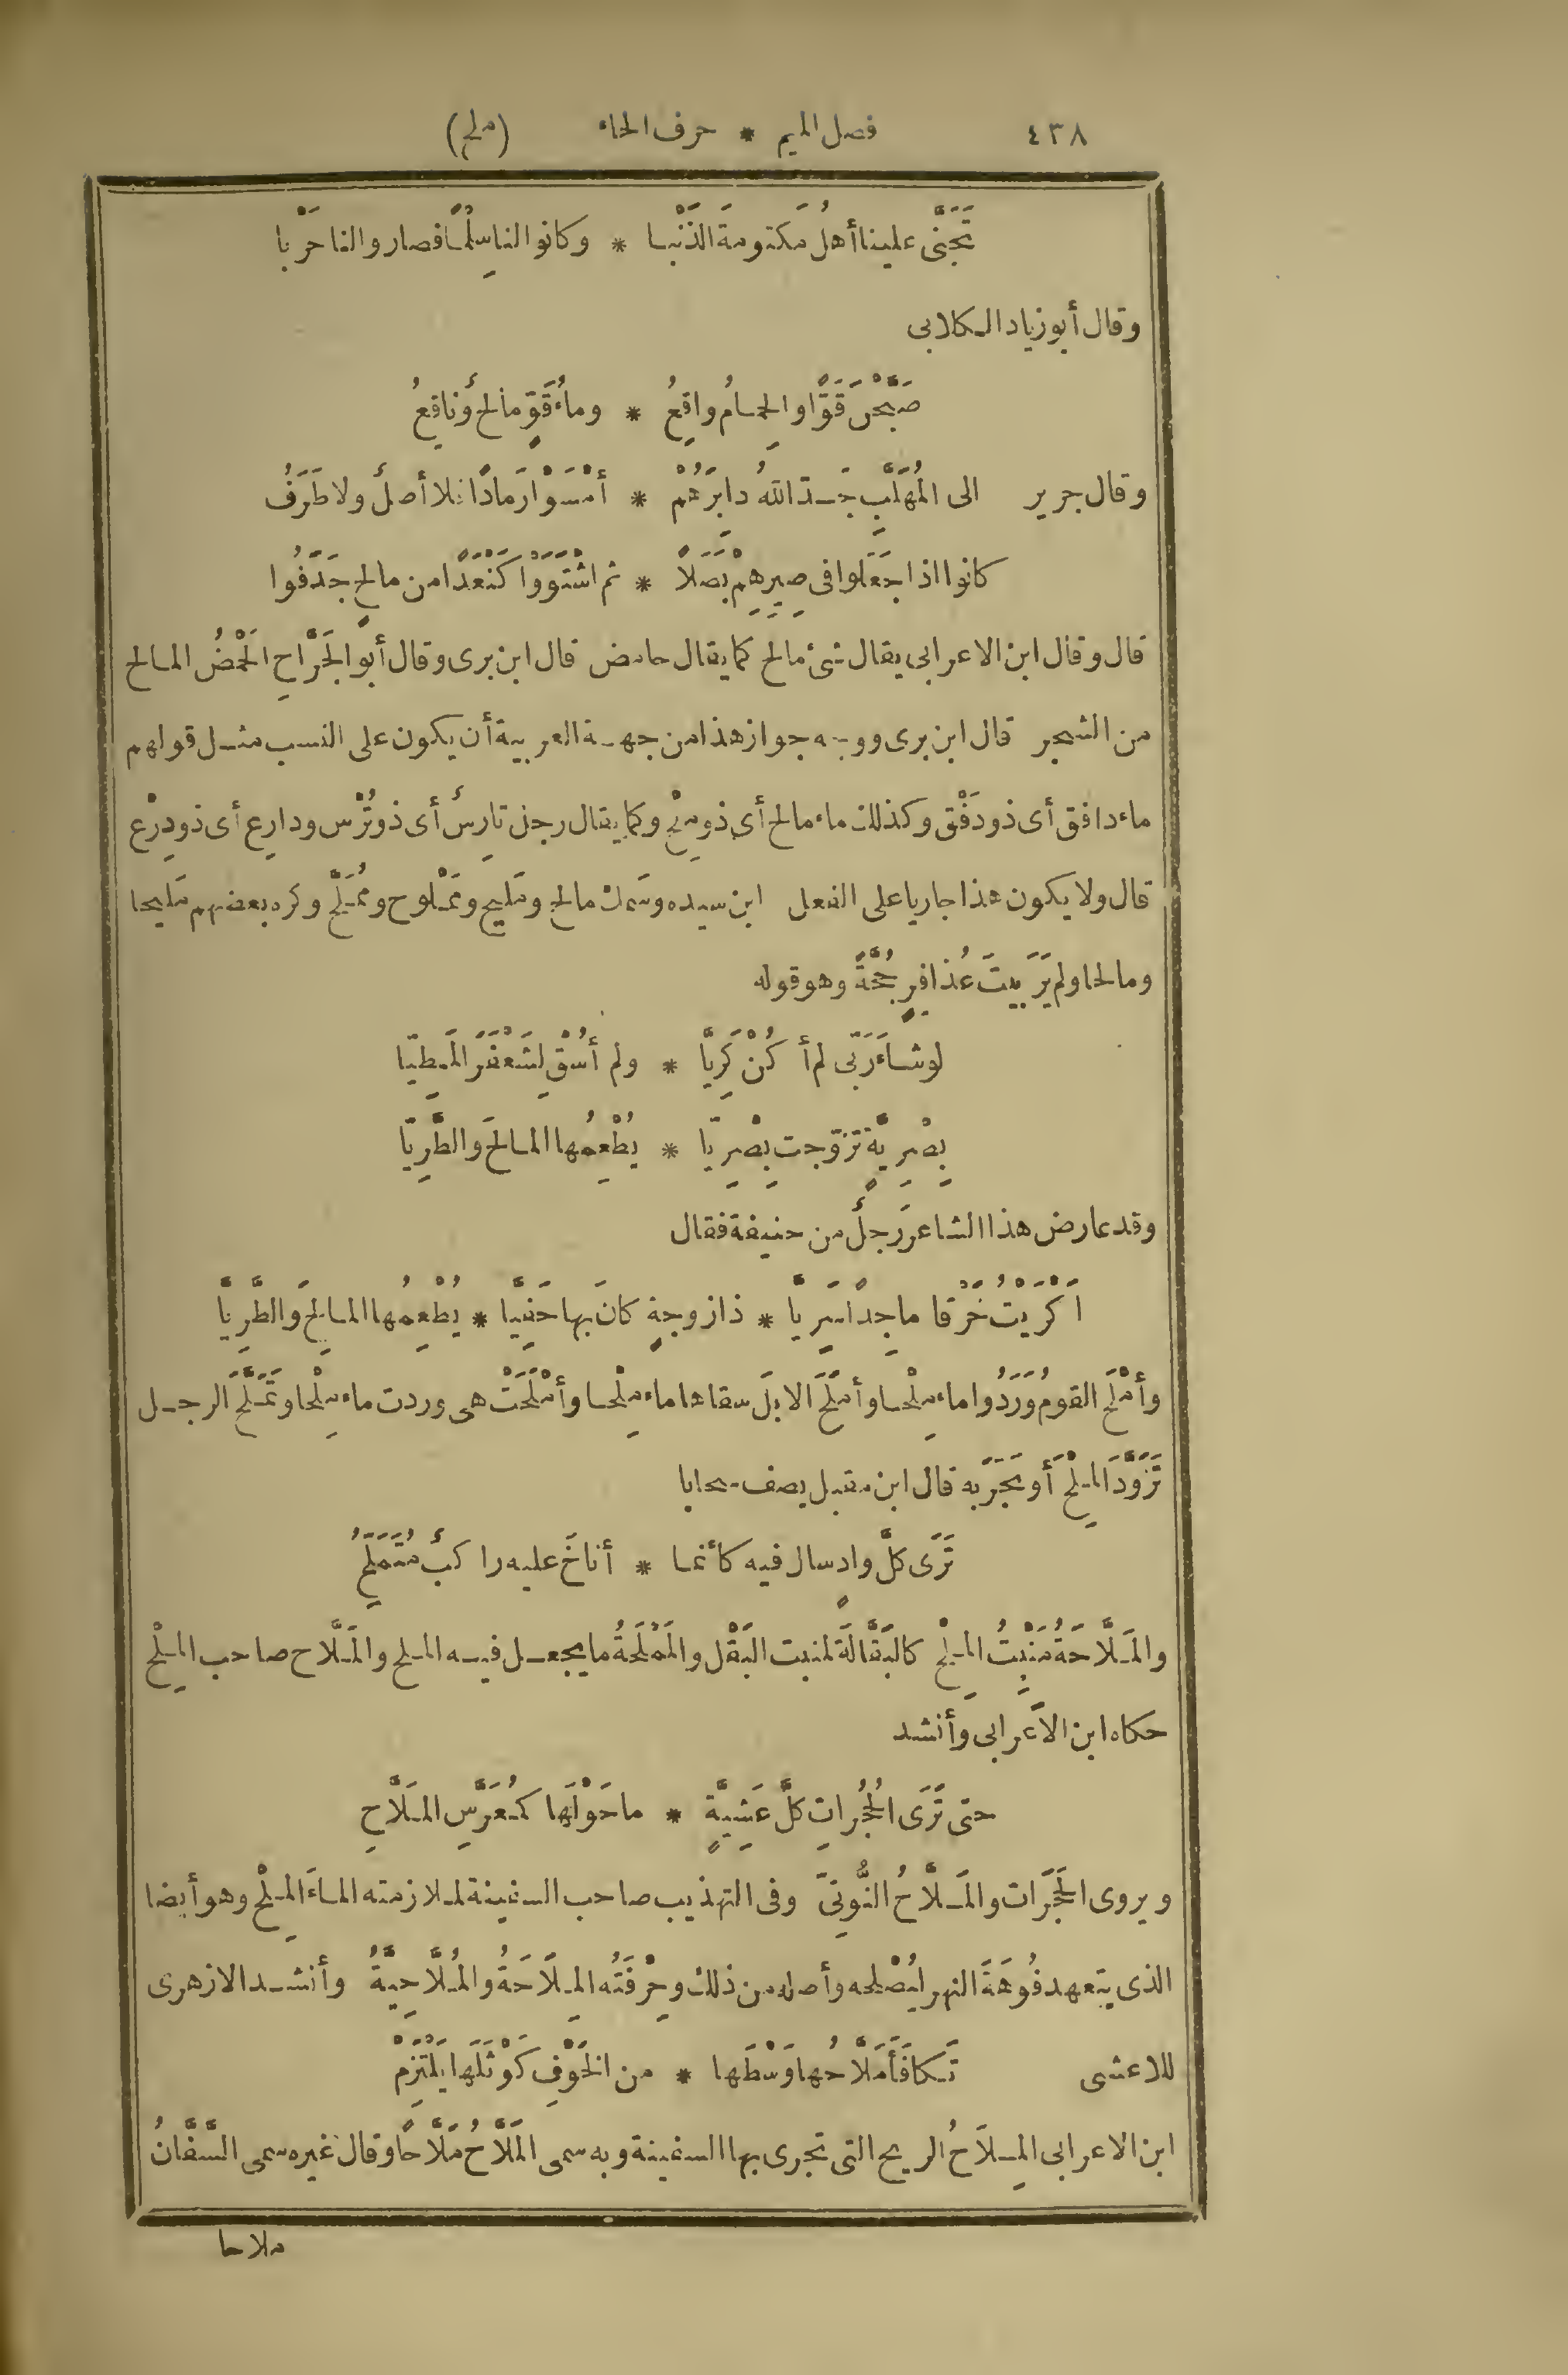 ٤٣٨ فصل الميم * حرف الحاء (ملح)
تَجَنَّى علينا أهلُ مَكتومةَ الذَّنْبا * وكانوا لنا سِلْمًا فصاروا لنا حَرْبا
وقال أبو زياد الكلابى
صَبَّحْنَ قَوًّا والحِمامُ واقِعُ * وماءُ قَوٍّ مالحٌ وناقِعُ
وقال جرير الى المُهَلَّبِ جَدّ اللهُ دابِرَهُمْ * أمْسَوْا رَمادًا فلا أصلٌ ولا طَرَفُ
كانوا اذا جَعَلوا فى صِيرِهِمْ بَصَلاً * ثم اشْتَوَوْا كَنْعَدًا من مالحٍ جَدَفُوا
قال وقال ابن الاعرابى يقال شىءٌ مالح كما يقال حامض قال ابن برى وقال أبو الجَرَّاحِ الحَمْضُ المالح
من الشجر قال ابن برى ووجه جواز هذا من جهة العربية أن يكون على النسب مثل قولهم
ماء دافق أى ذو دَفْق وكذلك ماء مالح أى ذو مِلْح وكما يقال رجل تارِسٌ أى ذو تُرْس ودارِع أى ذو دِرْع
قال ولا يكون هذا جاريا على الفعل ابن سيده وسَمَك مالح ومَليح ومَمْلوح ومُمَلَّح وكره بعضهم مَليحا
ومالحا ولم يَرَ بيتَ عُذافِرٍ حُجَّةً وهو قوله
لو شاءَ رَبّى لم أكُنْ كَرِيَّا * ولم أَسُقْ لِشَعْفَرَ المَطِيّا
بِصْرِيَّةٍ تزوّجت بِصْرِيّا * يُطْعِمُها المالحَ والطَّرِيّا
وقد عارض هذا الشاعرَ رجلٌ من حنيفة فقال
أكْرَيْتُ خَرْقا ماجِدًا سَرِيَّا * ذا زوجةٍ كانَ بها حَفِيَّا * يُطْعِمُها المالِحَ والطَّرِيَّا
وأمْلَحَ القومُ وَرَدُوا ماء مِلْحا وأَمْلَحَ الابلَ سقاها ماء مِلْحا وأمْلَحَتْ هى وردت ماء مِلْحا وتَمَلَّحَ الرجل
تَزَوَّدَ المِلْحَ أو تَجَرَ به قال ابن مقبل يصف سحابا
تَرَى كلَّ وادٍ سال فيه كأنما * أناخَ عليه راكبٌ مُتَمَلِّحُ
والمَلَّاحَةُ مَنْبِتُ المِلْح كالبَقَّالَة لمنبت البَقْل والمَمْلَحَةُ ما يجعل فيه الملح والمَلَّاح صاحب المِلْح
حكاه ابن الأعرابى وأنشد
حتى تَرَى الحُجُراتِ كلَّ عَشِيَّةٍ * ما حَوْلَها كمُعَرَّسِ المَلَّاحِ
ويروى الحَجَرات والمَلَّاحُ النُّوتِىّ وفى التهذيب صاحب السفينة لملازمته الماءَ المِلْح وهو أيضا
الذى يتعهد فُوهَةَ النهر ليُصْلحه وأصله من ذلك وحِرْفَتُه المِلاحَةُ والمُلَّاحِيَّةُ وأنشد الازهرى
للاعشى تَكافَأَ مَلَّاحُها وَسْطَها * من الخَوْفِ كَوْثَلَها يَلْتَزِمْ
ابن الاعرابى المِلاحُ الريح التى تجرى بها السفينة وبه سمى المَلَّاحُ مَلَّاحًا وقال غيره سمى السَّفَّانُ
ملاحا